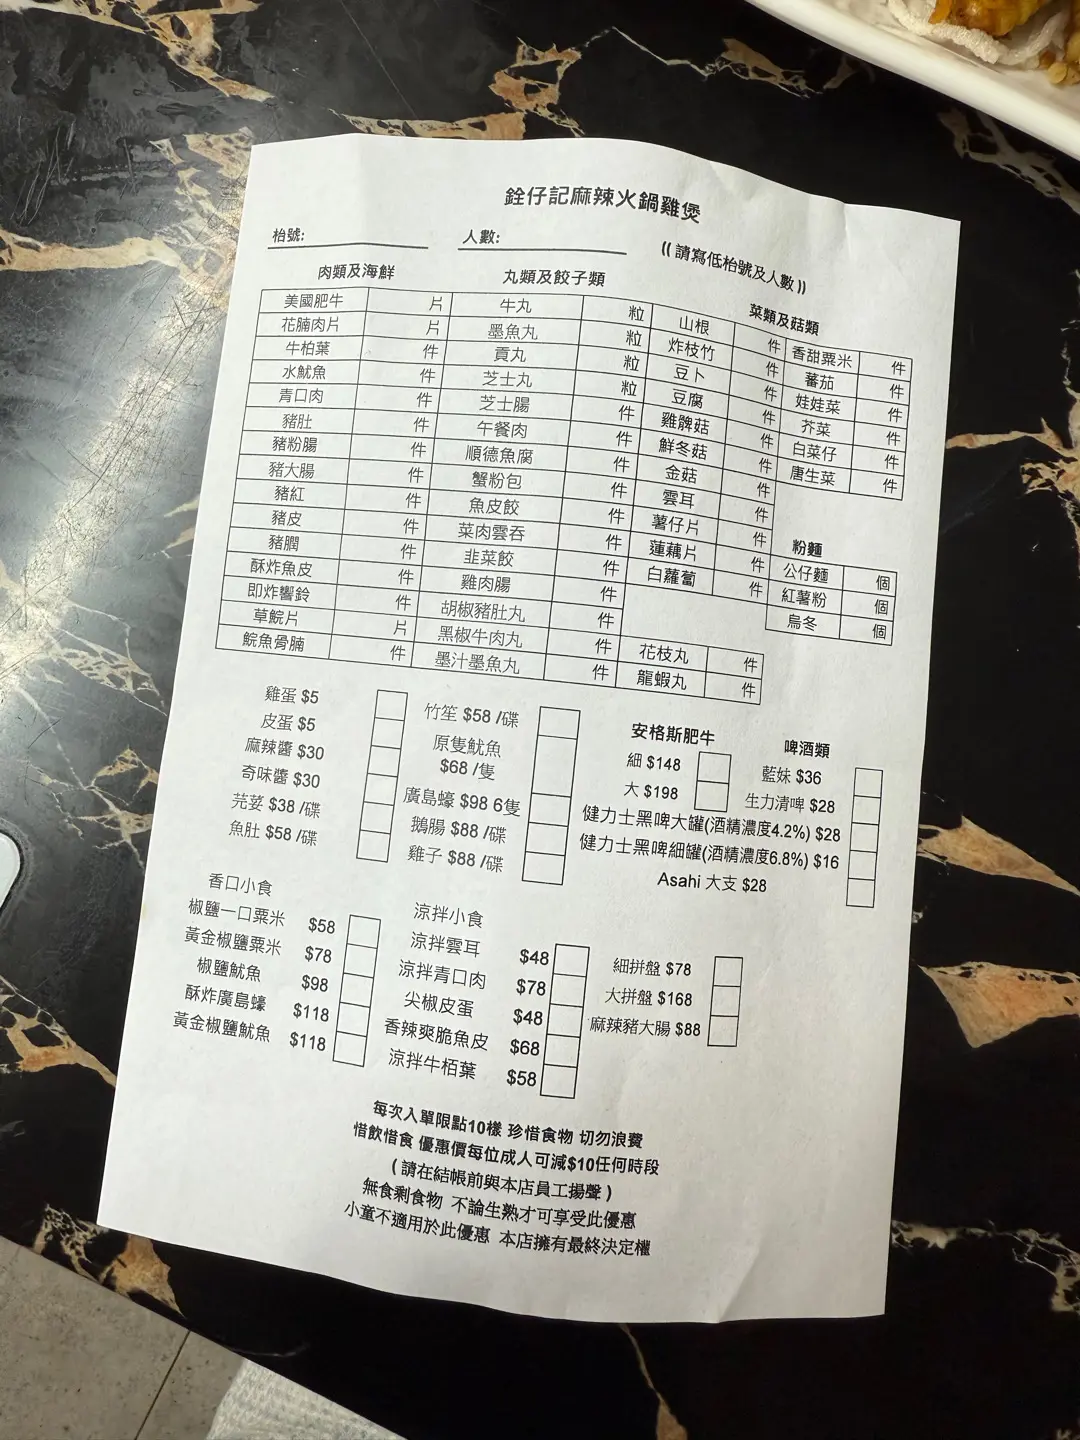 銓仔記麻辣火鍋雞煲
枱號:
人數:
(( 請寫低枱號及人數 ))
肉類及海鮮
美國肥牛 片
花腩肉片 片
牛柏葉 件
水魷魚 件
青口肉 件
豬肚 件
豬粉腸 件
豬大腸 件
豬紅 件
豬皮 件
豬膶 件
酥炸魚皮 件
即炸響鈴 件
草鯇片 片
鯇魚骨腩 件
丸類及餃子類
牛丸 粒
墨魚丸 粒
貢丸 粒
芝士丸 粒
芝士腸 件
午餐肉 件
順德魚腐 件
蟹粉包 件
魚皮餃 件
菜肉雲吞 件
韭菜餃 件
雞肉腸 件
胡椒豬肚丸 件
黑椒牛肉丸 件
墨汁墨魚丸 件
菜類及菇類
山根 件
炸枝竹 件
豆卜 件
豆腐 件
雞髀菇 件
鮮冬菇 件
金菇 件
雲耳 件
薯仔片 件
蓮藕片 件
白蘿蔔 件
花枝丸 件
龍蝦丸 件
香甜粟米 件
蕃茄 件
娃娃菜 件
芥菜 件
白菜仔 件
唐生菜 件
粉麵
公仔麵 個
紅薯粉 個
烏冬 個
雞蛋 $5
皮蛋 $5
麻辣醬 $30
奇味醬 $30
芫荽 $38 /碟
魚肚 $58 /碟
竹笙 $58 /碟
原隻魷魚
$68 /隻
廣島蠔 $98 6隻
鵝腸 $88 /碟
雞子 $88 /碟
安格斯肥牛
細 $148
大 $198
啤酒類
藍妹 $36
生力清啤 $28
健力士黑啤大罐(酒精濃度4.2%) $28
健力士黑啤細罐(酒精濃度6.8%) $16
Asahi 大支 $28
香口小食
椒鹽一口粟米 $58
黃金椒鹽粟米 $78
椒鹽魷魚 $98
酥炸廣島蠔 $118
黃金椒鹽魷魚 $118
涼拌小食
涼拌雲耳 $48
涼拌青口肉 $78
尖椒皮蛋 $48
香辣爽脆魚皮 $68
涼拌牛栢葉 $58
細拼盤 $78
大拼盤 $168
麻辣豬大腸 $88
每次入單限點10樣 珍惜食物 切勿浪費
惜飲惜食 優惠價每位成人可減$10任何時段
( 請在結帳前與本店員工揚聲 )
無食剩食物 不論生熟才可享受此優惠
小童不適用於此優惠 本店擁有最終決定權